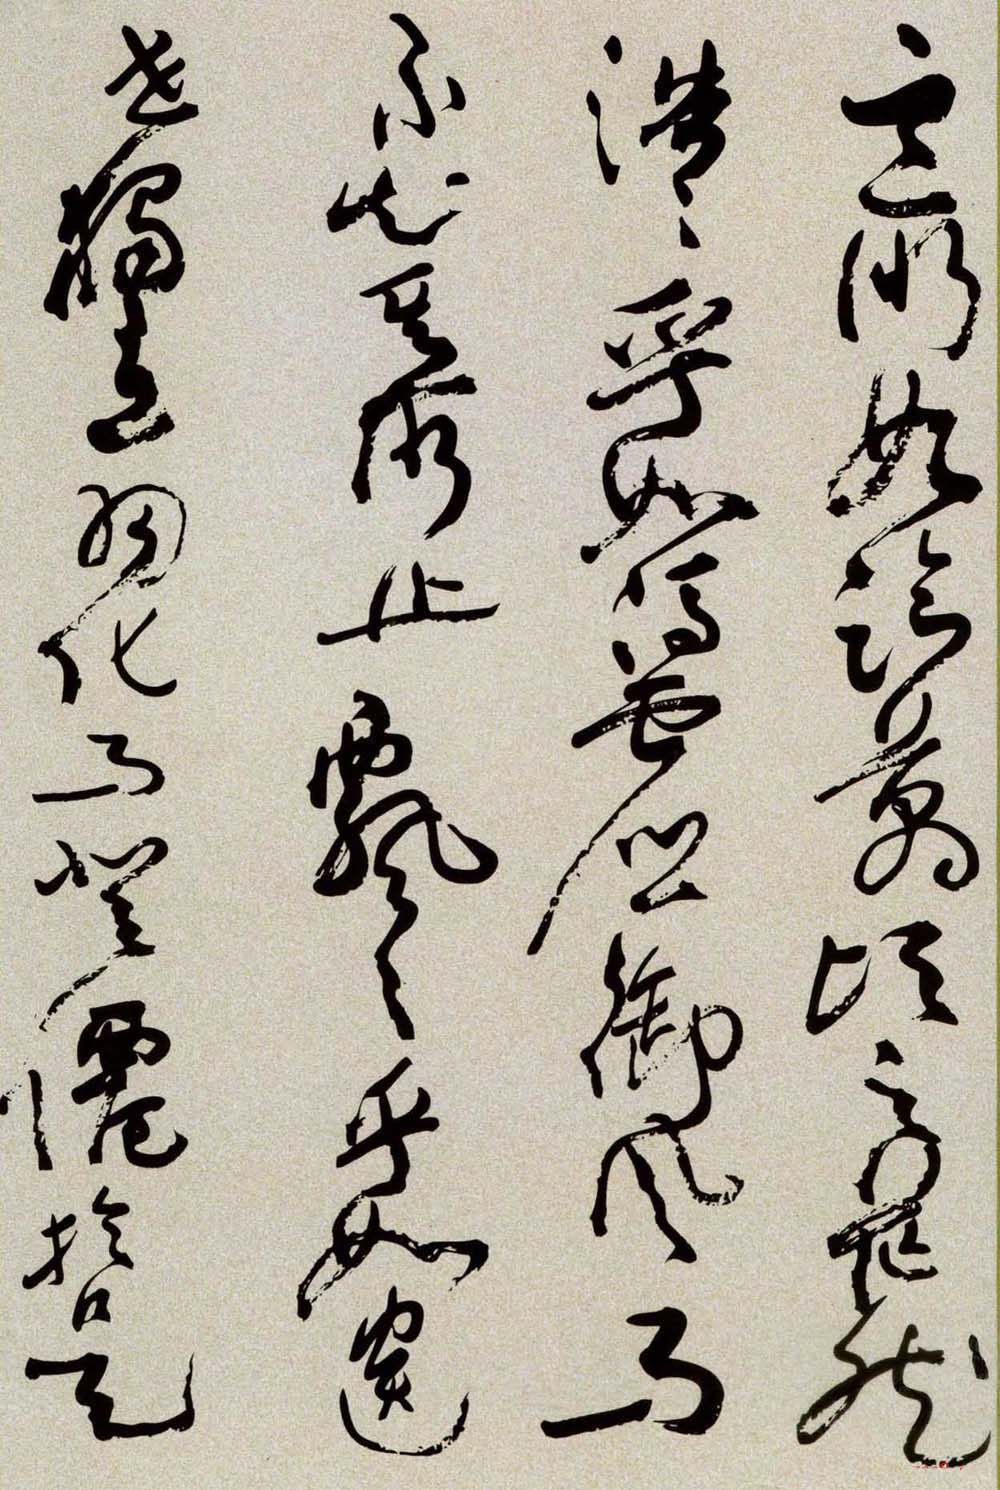 之所如凌萬頃之茫然
浩〻乎如馮虛御風而
不知其所止飄〻乎如遺
世獨立羽化而登僊於是